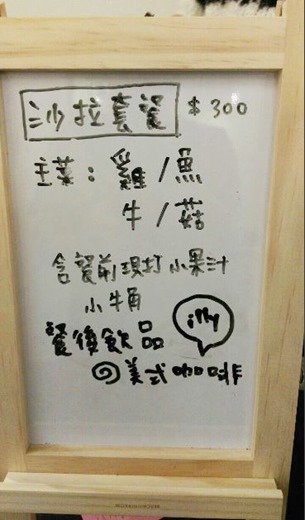 沙拉套餐 $300
主菜：雞/魚
牛/菇
含餐前現打小果汁
小牛角
餐後飲品 illy
@美式咖啡